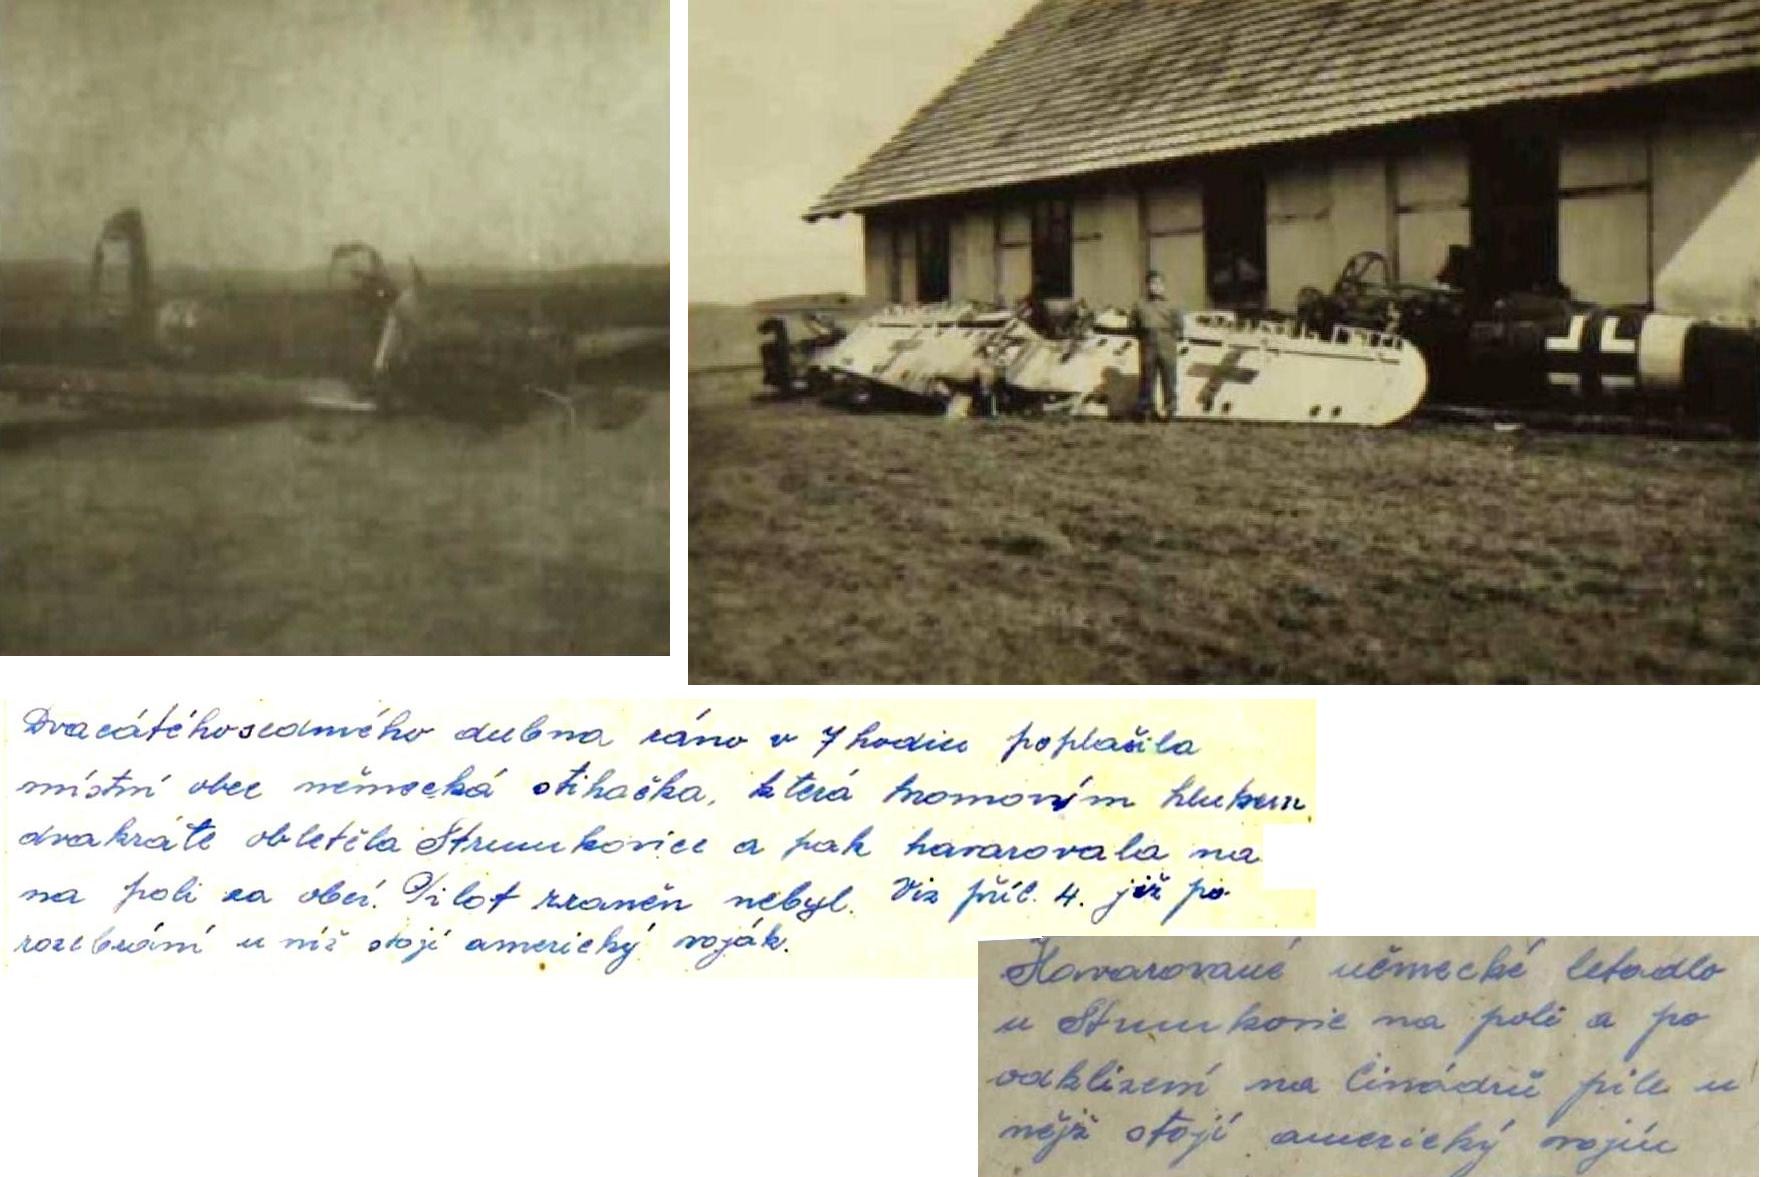 Dvacátéhosedmého dubna ráno v 7 hodin poplašila
místní obec německá stihačka, která hromovým hlukem
dvakráte obletěla Strunkovice a pak havarovala na
na poli za obcí. Pilot zraněn nebyl. Viz příl. 4. již po
rozebrání u níž stojí americký voják.
Havarované německé letadlo
u Strunkovic na poli a po
odklizení na Činádrů pile u
nějž stojí americký vojín